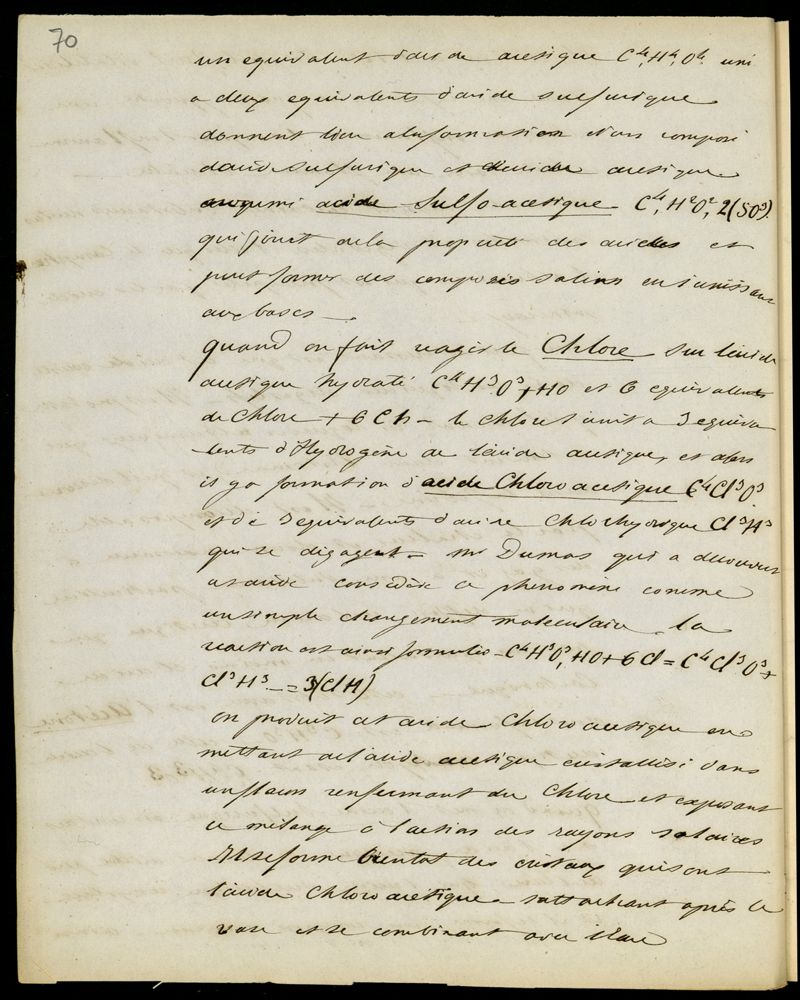 70
un equivalent d'acide acetique C⁴, H⁴, O⁴ uni
a deux equivalents d'acide sulfurique
donnent lieu a la formation d'un composé
d'acide sulfurique et d'acide acetique
acide Sulfo-acetique C⁴, H²O², 2(SO³).
qui jouit de la propriété des acides et
peut former des composés salins en s'unissant
aux bases —.
quand on fait reagir le Chlore sur l'acide
acetique hydraté C⁴H³O³+HO et 6 equivalents
de Chlore + 6 Ch – le chlore s'unit a 3 equiva
-lents d'Hydrogène de l'acide acetique, et alors
il y a formation d'acide Chloro acetique C⁴Cl³O³
et de 3 equivalents d'acide Chlorhydrique Cl³H³
qui se dégagent – mr Dumas qui a decouvert
cet acide considère ce phenomène comme
un simple changement moleculaire. la
reaction est ainsi formulée – C⁴H³O³, HO+6 Cl = C⁴Cl³O³+
Cl³H³ — = 3(ClH)
on produit cet acide Chloro acetique en
mettant de l'acide acetique cristallisé dans
un flacon renfermant du Chlore et exposant
ce mélange à l'action des rayons solaires
Il se forme bientot des cristaux qui sont
l'acide Chloro acetique s'attachant après le
vase et se combinant avec l'eau